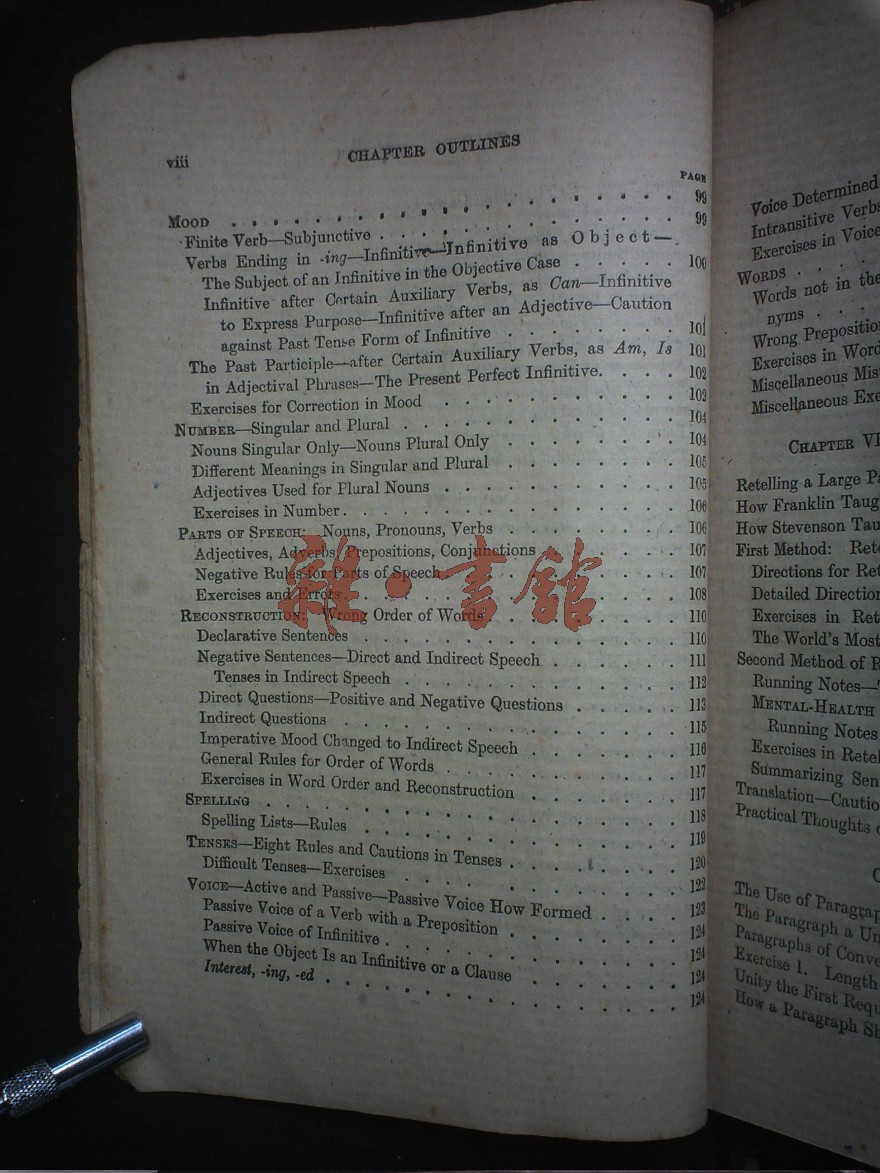 viii
CHAPTER OUTLINES
PAGE
MOOD . . . . . . . . . . . . . . . . . 99
Finite Verb—Subjunctive . . . . . . . . . . . . 99
Verbs Ending in -ing—Infinitive—Infinitive as Object—
The Subject of an Infinitive in the Objective Case . . . . . 100
Infinitive after Certain Auxiliary Verbs, as Can—Infinitive
to Express Purpose—Infinitive after an Adjective—Caution
against Past Tense Form of Infinitive . . . . . . . 101
The Past Participle—after Certain Auxiliary Verbs, as Am, Is 101
in Adjectival Phrases—The Present Perfect Infinitive. . . . 102
Exercises for Correction in Mood . . . . . . . . . 102
NUMBER—Singular and Plural . . . . . . . . . . . 104
Nouns Singular Only—Nouns Plural Only . . . . . . . 104
Different Meanings in Singular and Plural . . . . . . . 105
Adjectives Used for Plural Nouns . . . . . . . . . 105
Exercises in Number . . . . . . . . . . . . . 106
PARTS OF SPEECH: Nouns, Pronouns, Verbs . . . . . . . 106
Adjectives, Adverbs, Prepositions, Conjunctions . . . . . 107
Negative Rules for Parts of Speech . . . . . . . . . 107
Exercises and Errors . . . . . . . . . . . . . 108
RECONSTRUCTION: Wrong Order of Words . . . . . . . 110
Declarative Sentences . . . . . . . . . . . . 110
Negative Sentences—Direct and Indirect Speech . . . . . . 111
Tenses in Indirect Speech . . . . . . . . . . . 112
Direct Questions—Positive and Negative Questions . . . . . 113
Indirect Questions . . . . . . . . . . . . . 115
Imperative Mood Changed to Indirect Speech . . . . . . 116
General Rules for Order of Words . . . . . . . . . 117
Exercises in Word Order and Reconstruction . . . . . . 117
SPELLING . . . . . . . . . . . . . . . . 118
Spelling Lists—Rules . . . . . . . . . . . . 119
TENSES—Eight Rules and Cautions in Tenses . . . . . . . 120
Difficult Tenses—Exercises . . . . . . . . . . 122
VOICE—Active and Passive—Passive Voice How Formed . . . . 123
Passive Voice of a Verb with a Preposition . . . . . . . 124
Passive Voice of Infinitive . . . . . . . . . . . 124
When the Object Is an Infinitive or a Clause . . . . . . 124
Interest, -ing, -ed . . . . . . . . . . . . . 124
雜·書館
Voice Determined
Intransitive Verbs
Exercises in Voice
WORDS . . . .
Words not in the
nyms . . .
Wrong Preposition
Exercises in Word
Miscellaneous Mis
Miscellaneous Exe
CHAPTER VI
Retelling a Large Pa
How Franklin Taug
How Stevenson Tau
First Method: Rete
Directions for Ret
Detailed Direction
Exercises in Ret
The World's Most
Second Method of R
Running Notes—
MENTAL-HEALTH
Running Notes
Exercises in Retel
Summarizing Sen
Translation—Cautio
Practical Thoughts
C
The Use of Paragrap
The Paragraph a Un
Paragraphs of Conve
Exercise 1. Length
Unity the First Requ
How a Paragraph Sh